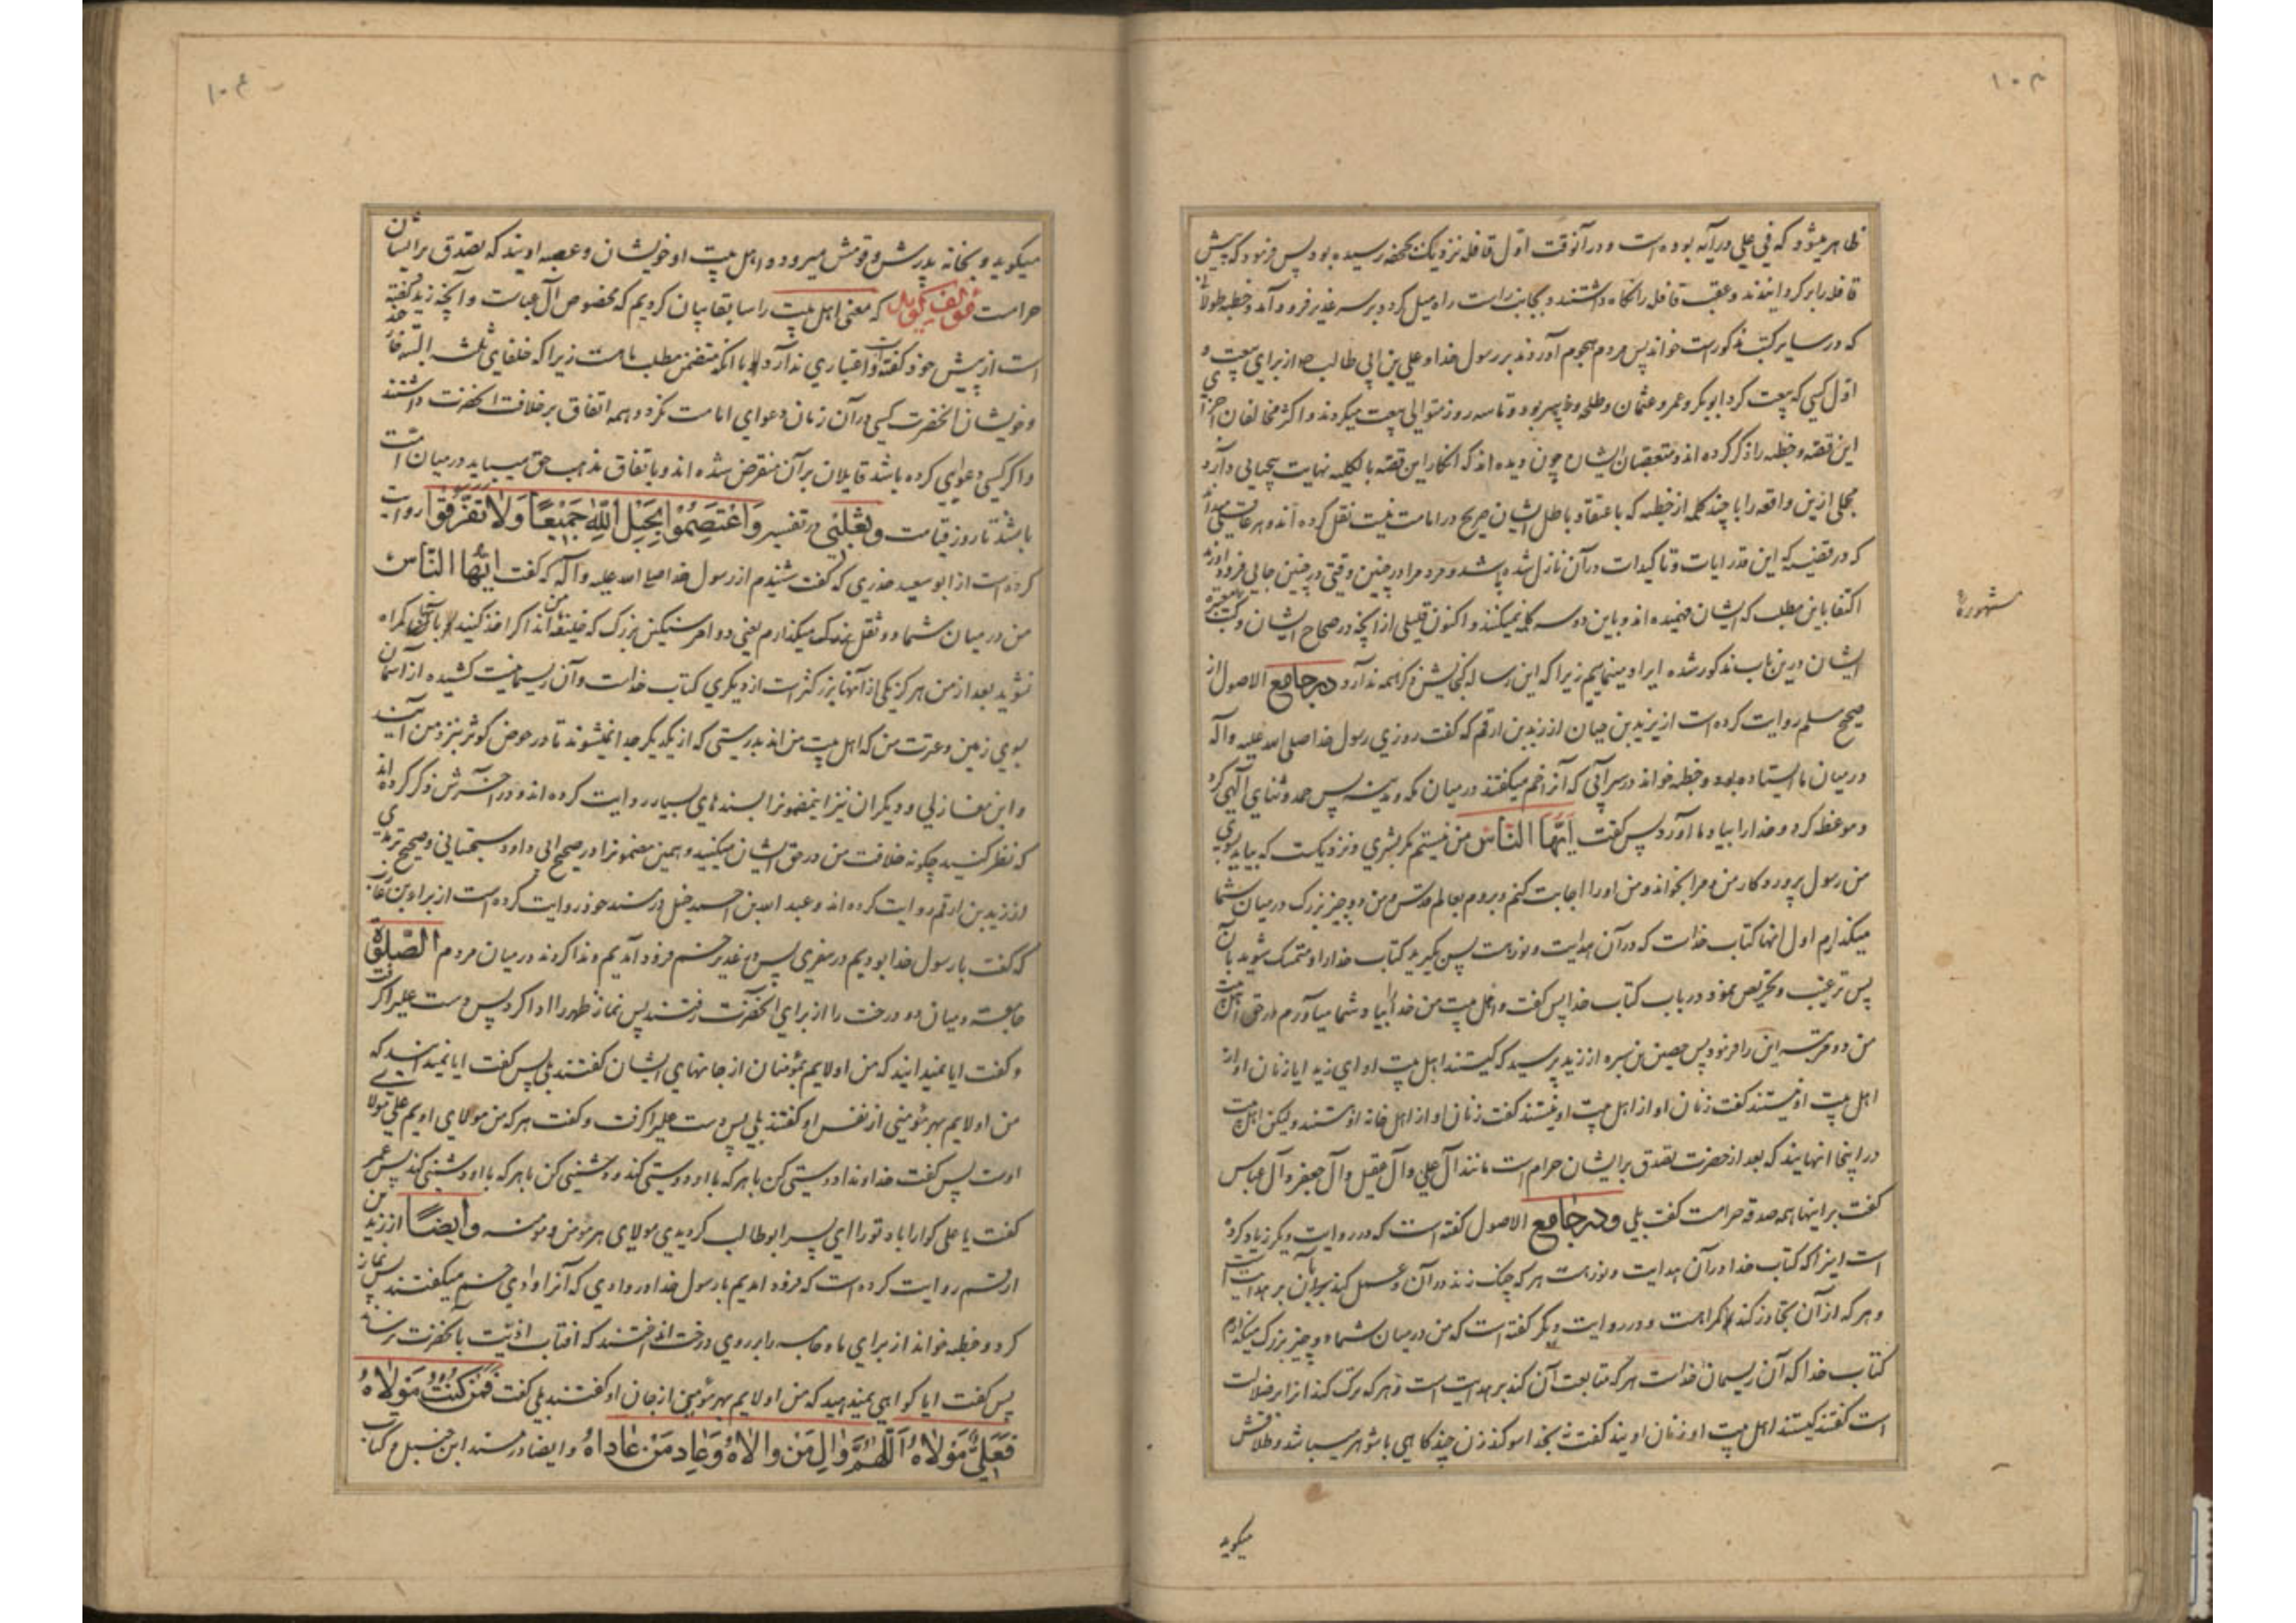 ظاهر میشود که فی علی در آیه بوده است و در آنوقت اول قافله نزدیک بجحفه رسیده بود پس فرمود که پیش
قافله را برگردانیدند و عقب قافله را نگاه داشتند و بجانب راست راه میل کرد و بر سر غدیر فرود آمد و خطبه طولانی
که در سایر کتب مذکور است خواند پس مردم هجوم آوردند بر رسول خدا و علی بن ابی طالب از برای بیعت و
اول کسی که بیعت کرد ابوبکر و عمر و عثمان و طلحه و زبیر بود و تا سه روز متوالی بیعت میکردند و اکثر مخالفان
این قصه و خطبه را ذکر کرده اند و متعصبان ایشان چون دیده اند که انکار این قصه بالکلیه نهایت بیحیایی دارد
مجملی ازین واقعه را با چند کلمه از خطبه که باعتقاد باطل ایشان صریح در امامت نیست نقل کرده اند و هر عاقلی میداند
که در قضیه که این قدر ایات و تاکیدات در آن نازل شده باشد و مردم را در چنین وقتی در چنین جایی فرود آورند
اکتفا باین مطلب که ایشان فهمیده اند و باین دو سه کلمه نمیکنند و اکنون قلیلی از آنچه در صحاح ایشان و کتب معتبره
مشهوره
ایشان درین باب مذکور شده ایراد مینمایم زیرا که این رساله گنجایش ذکر همه ندارد در جامع الاصول از
صحیح مسلم روایت کرده است از یزید بن حیان از زید بن ارقم که گفت روزی رسول خدا صلی الله علیه وآله
در میان ما ایستاده بود و خطبه خواند در سر آبی که آنرا خم میگفتند در میان مکه و مدینه پس حمد و ثنای الهی کرد
و موعظه کرد و خدا را بیاد ما آورد پس گفت اَیُّهَا النّاس من نیستم مگر بشری و نزدیکست که بیاید بسوی
من رسول پروردکار من و مرا بخواند و من او را اجابت کنم و بروم بعالم قدس و من دو چیز بزرک در میان شما
میگذارم اول انها کتاب خداست که در آن هدایت و نور است پس بگیرید کتاب خدا را و متمسک شوید بآن
پس ترغیب و تحریص نمود در باب کتاب خدا پس گفت و اهل بیت من خدا را بیاد شما میآورم در حق اهل بیت
من دو مرتبه این را فرمود پس حصین بن سبره از زید پرسید که کیستند اهل بیت او ای زید ایا زنان او از
اهل بیت او نیستند گفت زنان او از اهل بیت او نیستند گفت زنان او از اهل خانه او هستند ولیکن اهل بیت
در اینجا انهایند که بعد از حضرت تصدق بر ایشان حرام است مانند آل علی و آل عقیل و آل جعفر و آل عباس
گفت بر اینها همه صدقه حرامست گفت بلی و در جامع الاصول گفته است که در روایت دیگر زیاد کرده
است اینرا که کتاب خدا در آن هدایت و نور است هر که چنک زند در آن و عمل کند بآن بر هدایت است
و هر که از آن تجاوز کند گمراهست و در روایت دیگر گفته است که من در میان شما دو چیز بزرگ میگذارم
کتاب خدا که آن ریسمان خداست هر که متابعت آن کند بر هدایت است و هر که ترک کند انرا بر ضلالت
است گفتند کیستند اهل بیت او زنان اویند گفت نه بخدا سوکند زن چند گاهی با شوهر میباشد و طلاقش
میگوید
میگوید و بخانه پدرش و قومش میرود و اهل بیت او خویشان و عصبه اویند که تصدق بر ایشان
حرامست مؤلف گوید که معنی اهل بیت را سابقا بیان کردیم که مخصوص آل عباست و آنچه زید گفته
است از پیش خود گفته است و اعتباری ندارد با آنکه متضمن مطلب ماست زیرا که خلفای ثلثه البته
و خویشان آنحضرت کسی در آن زمان دعوای امامت نکرد و همه اتفاق بر خلافت آنحضرت داشتند
و اگر کسی دعوای کرده باشد قایلان بر آن منقرض شده اند و باتفاق مذهب حق میباید در میان امت
باشد تا روز قیامت و ثعلبی در تفسیر وَاعْتَصِمُوا بِحَبْلِ اللّٰهِ جَمیعًا وَلا تَفَرَّقُوا روایت
کرده است از ابو سعید خدری که گفت شنیدم از رسول خدا صلی الله علیه وآله که گفت اَیُّهَا النّاس
من در میان شما دو ثقل بزرک میگذارم یعنی دو امر سنکین بزرک که خلیفه منند اگر اخذ کنید بآنها گمراه
نشوید بعد از من هرگز یکی از آنها بزرکتر است از دیگری کتاب خداست و آن ریسمانیست کشیده از آسمان
بسوی زمین و عترت من که اهل بیت من اند بدرستی که از یکدیگر جدا نمیشوند تا در حوض کوثر بنزد من آیند
و ابن مغازلی و دیگران نیز اینمضمونرا بسندهای بسیار روایت کرده اند و در آخرش ذکر کرده اند
که نظر کنید چگونه خلافت من در حق ایشان میکنید و همین مضمونرا در صحیح ابی داود سجستانی و صحیح ترمذی
از زید بن ارقم روایت کرده اند و عبد الله بن احمد حنبل در مسند خود روایت کرده است از براء بن عازب
که گفت با رسول خدا بودیم در سفری پس در غدیر خم فرود آمدیم و ندا کردند در میان مردم الصَّلوٰة
جامعة و میان دو درخت را از برای آنحضرت رفتند پس نماز ظهر را ادا کرد پس دست علیرا گرفت
و گفت ایا نمیدانید که من اولایم بمؤمنان از جانهای ایشان گفتند بلی پس گفت ایا نمیدانید که
من اولایم بهر مؤمنی از نفس او گفتند بلی پس دست علیرا گرفت و گفت هر که من مولای اویم علی مولای
اوست پس گفت خداوندا دوستی کن با هر که با او دوستی کند و دشمنی کن با هر که با او دشمنی کند پس عمر
گفت یا علی گوارا باد تو را ای پسر ابو طالب گردیدی مولای هر مؤمن و مؤمنه وایضًا از زید بن
ارقم روایت کرده است که فرود امدیم با رسول خدا در وادی که آنرا وادی خم میگفتند پس نماز
کرد و خطبه خواند از برای ما و جامه را بر روی درخت انداختند که افتاب اذیت بآنحضرت نرساند
پس گفت ایا گواهی نمیدهید که من اولایم بهر مؤمنی از جان او گفتند بلی گفت فَمَنْ کُنْتُ مَوْلاهُ
فَعَلِیٌّ مَوْلاهُ اَللّٰهُمَّ وٰالِ مَنْ والاهُ وَعادِ مَنْ عاداهُ و ایضا در مسند ابن حنبل و کتاب